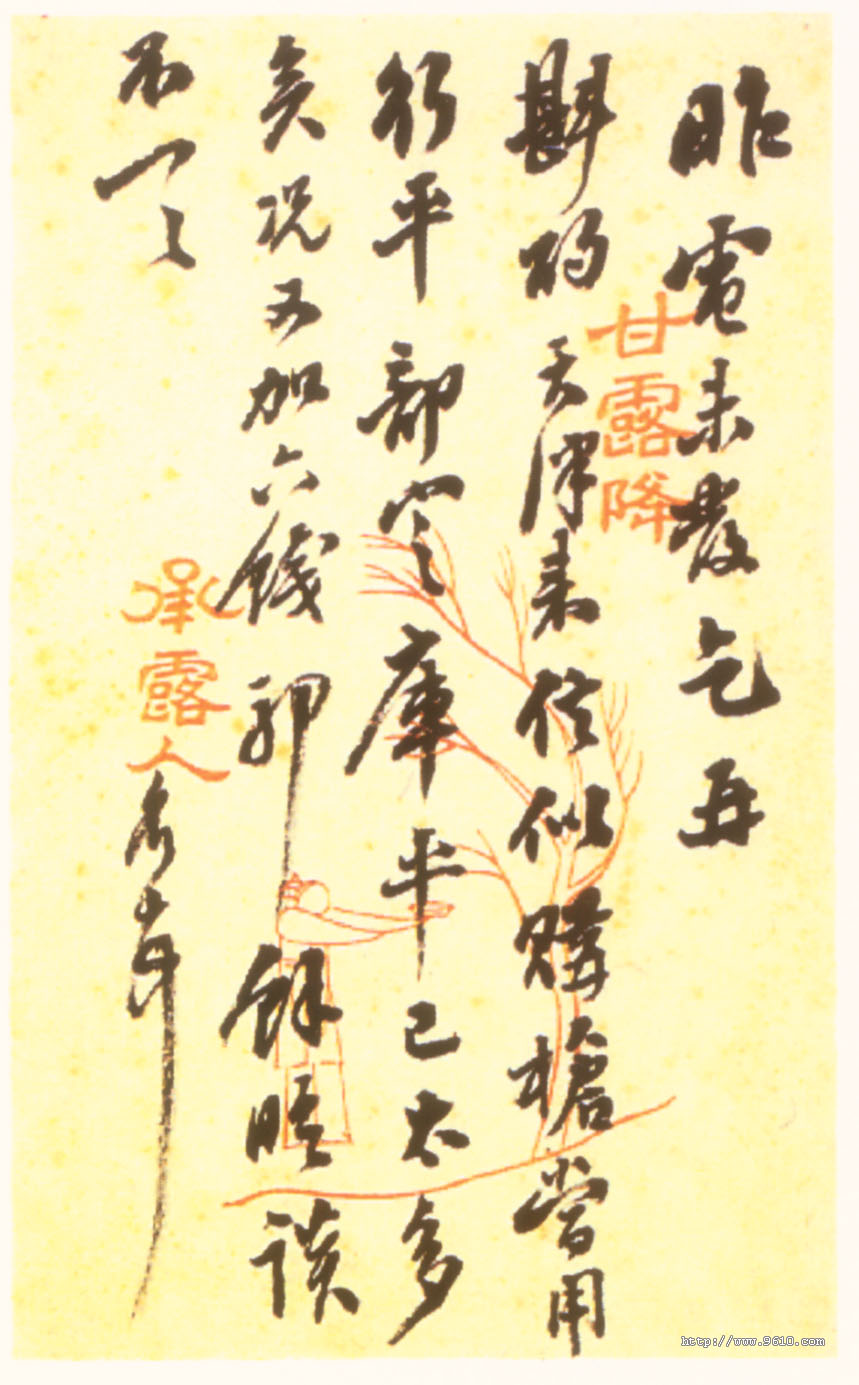 昨電未發乞再
斟酌天津來信似購槍嘗用
行平部定庫平已太多
矣況又加六錢耶餘晤談
不一一
名
甘露降
承露人
http://www.9610.com